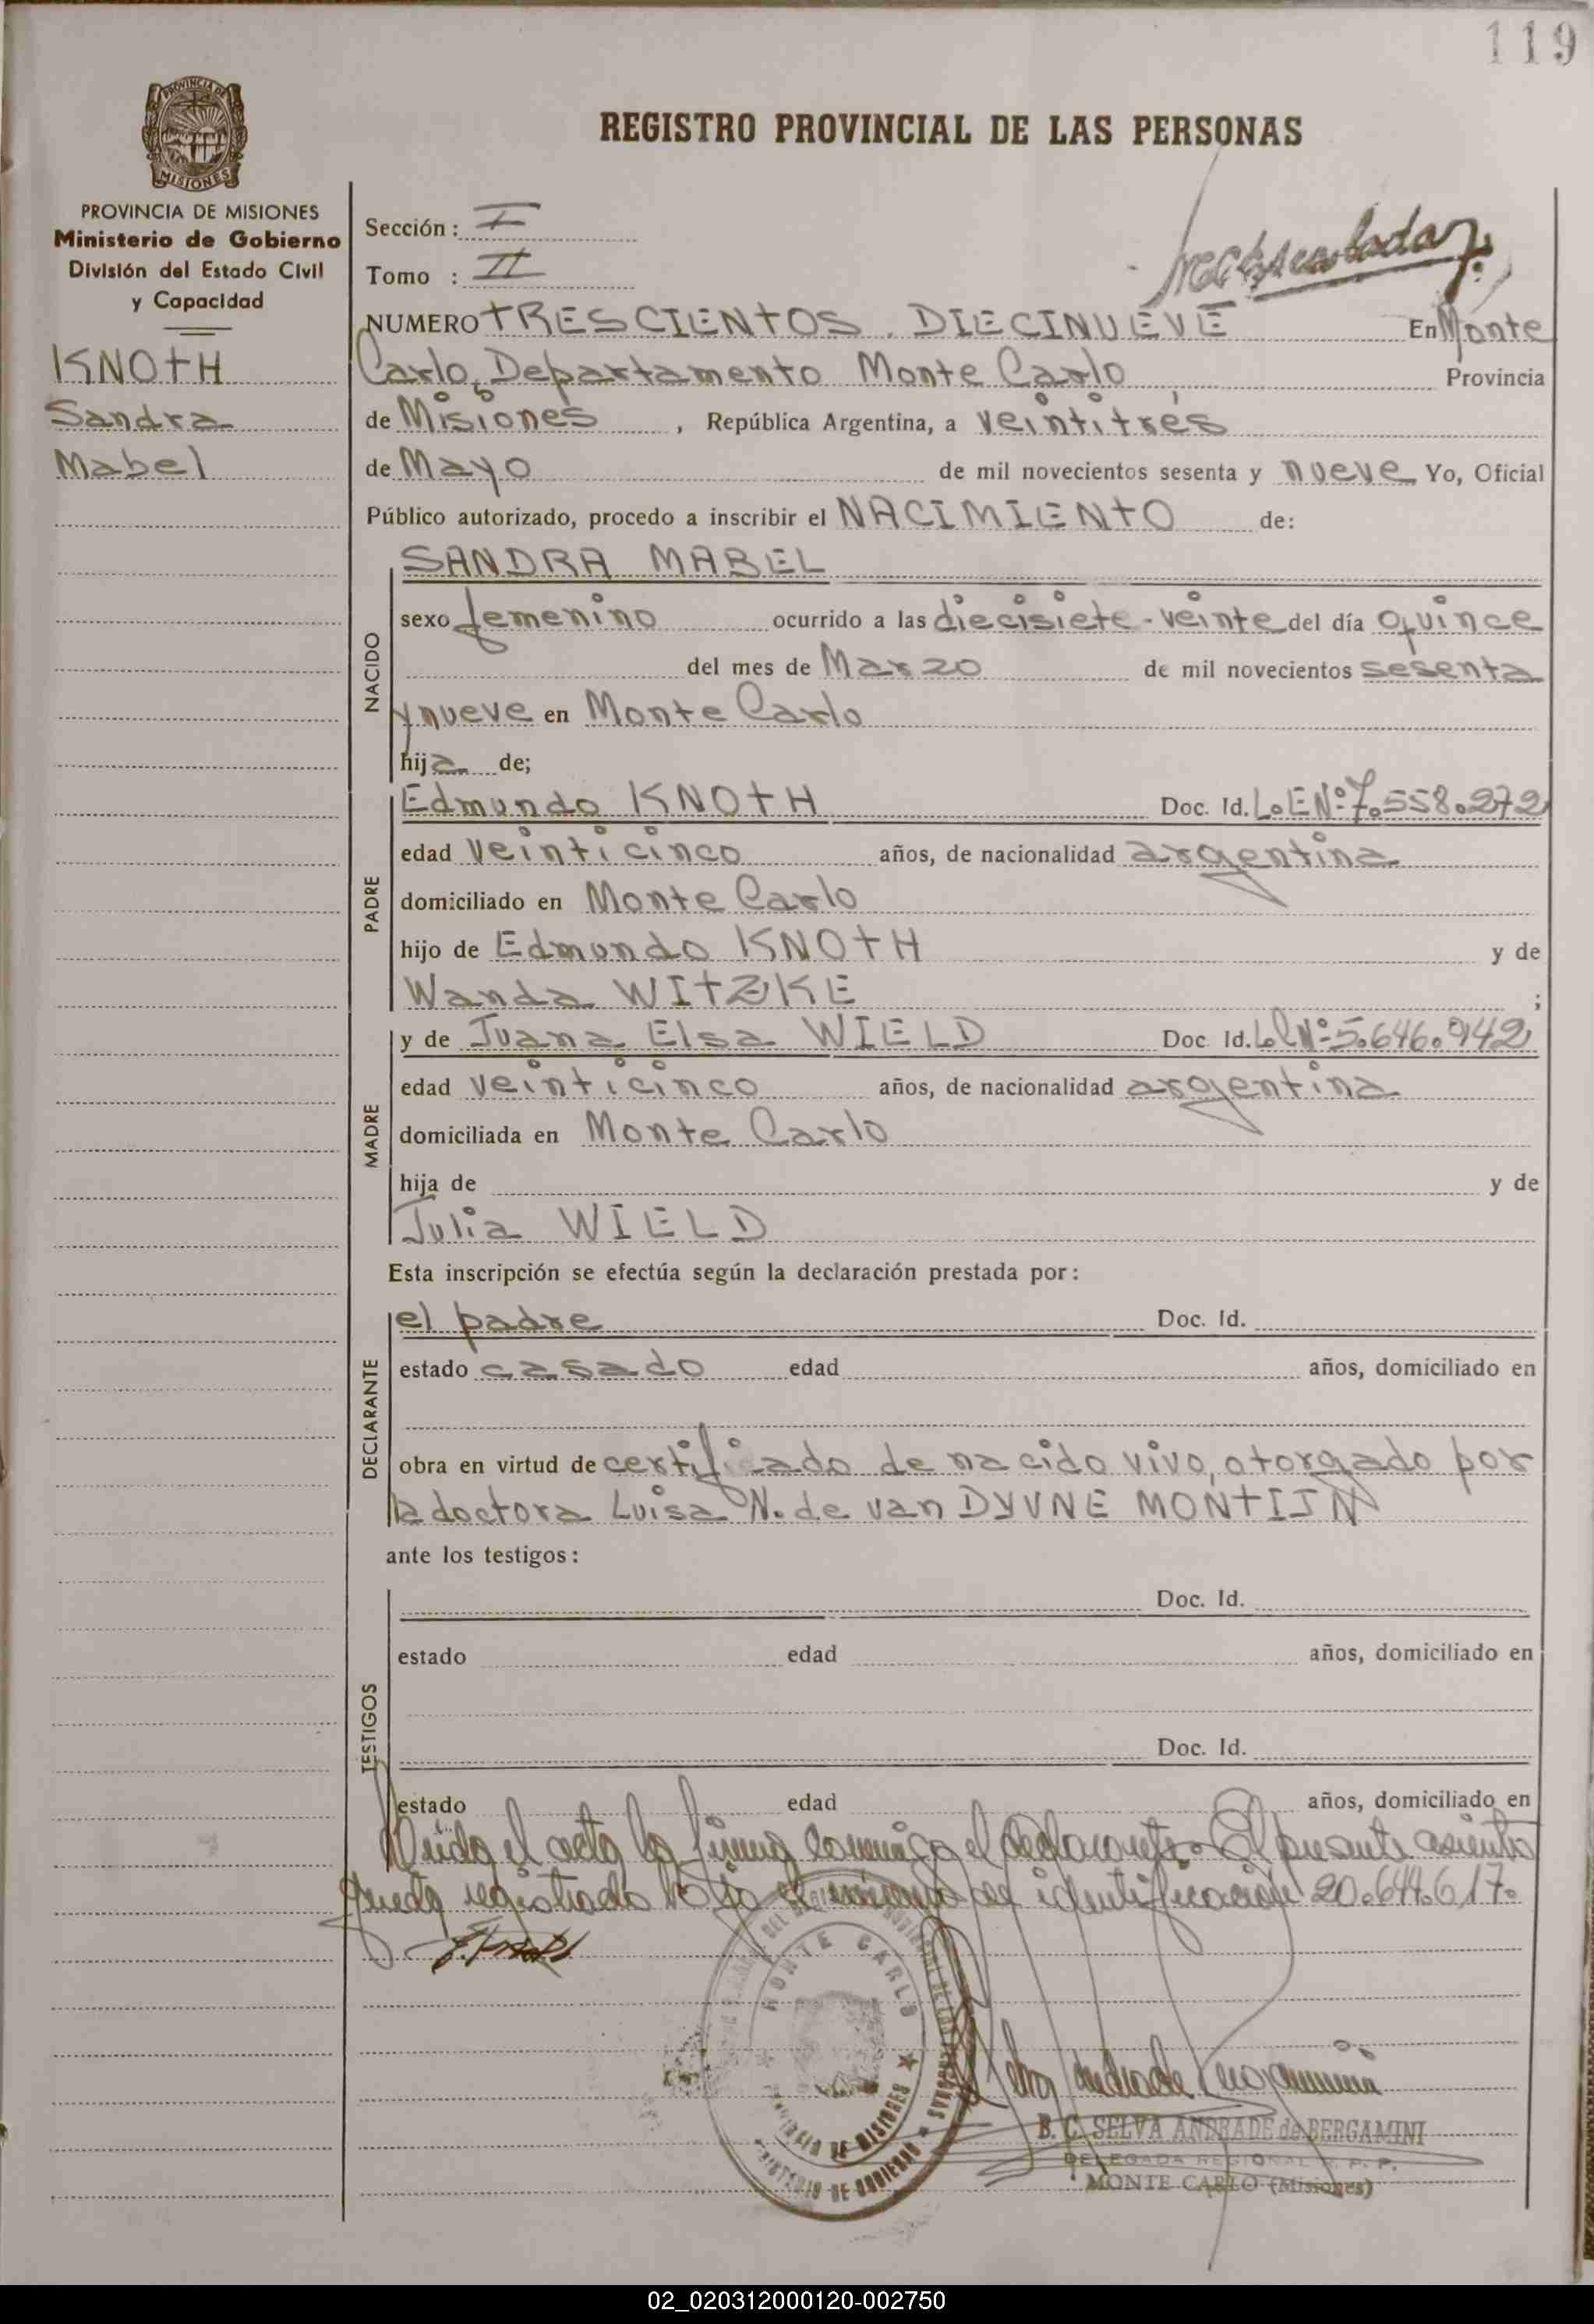 119
PROVINCIA DE
MISIONES
REGISTRO PROVINCIAL DE LAS PERSONAS
PROVINCIA DE MISIONES
Ministerio de Gobierno
División del Estado Civil
y Capacidad
KNOTH
Sandra
Mabel
Sección: I
Tomo : II
NUMERO TRESCIENTOS DIECINUEVE En Monte
Carlo, Departamento Monte Carlo Provincia
de Misiones, República Argentina, a veintitrés
de Mayo de mil novecientos sesenta y nueve Yo, Oficial
Público autorizado, procedo a inscribir el NACIMIENTO de:
NACIDO
SANDRA MABEL
sexo femenino ocurrido a las diecisiete-veinte del día quince
del mes de Marzo de mil novecientos sesenta
y nueve en Monte Carlo
hija de;
PADRE
Edmundo KNOTH Doc. Id. L.E Nº 7.558.272
edad veinticinco años, de nacionalidad argentina
domiciliado en Monte Carlo
hijo de Edmundo KNOTH y de
Wanda WITZKE ;
MADRE
y de Juana Elsa WIELD Doc. Id. L.C Nº 5.646.942
edad veinticinco años, de nacionalidad argentina
domiciliada en Monte Carlo
hija de y de
Julia WIELD
Esta inscripción se efectúa según la declaración prestada por:
DECLARANTE
el padre Doc. Id.
estado casado edad años, domiciliado en
obra en virtud de certificado de nacido vivo, otorgado por
la doctora Luisa N. de van DYVNE MONTIJN
ante los testigos:
TESTIGOS
Doc. Id.
estado edad años, domiciliado en
Doc. Id.
estado edad años, domiciliado en
Leída el acta la firma conmigo el declarante. El presente asiento
queda registrado bajo el número de identificación 20.644.617.
MONTE CARLO
PROVINCIA DE MISIONES
MINISTERIO DE GOBIERNO
B. C. SELVA ANDRADE de BERGAMINI
DELEGADA REGIONAL R. P. P.
MONTE CARLO (Misiones)
02_020312000120-002750